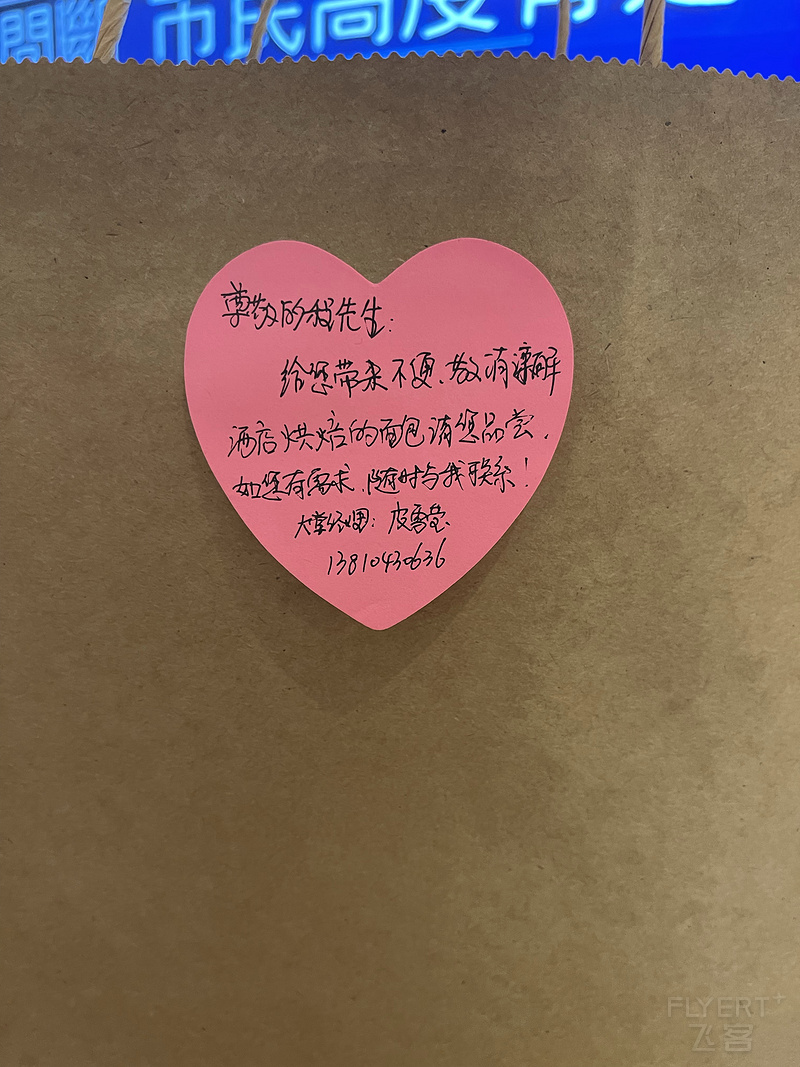 市民高度
尊敬的 先生:
给您带来不便、敬请谅解
酒店烘焙的面包请您品尝,
如您有需求,随时与我联系!
大堂经理: 皮雪莹
13810430636
FLYERT+
飞客